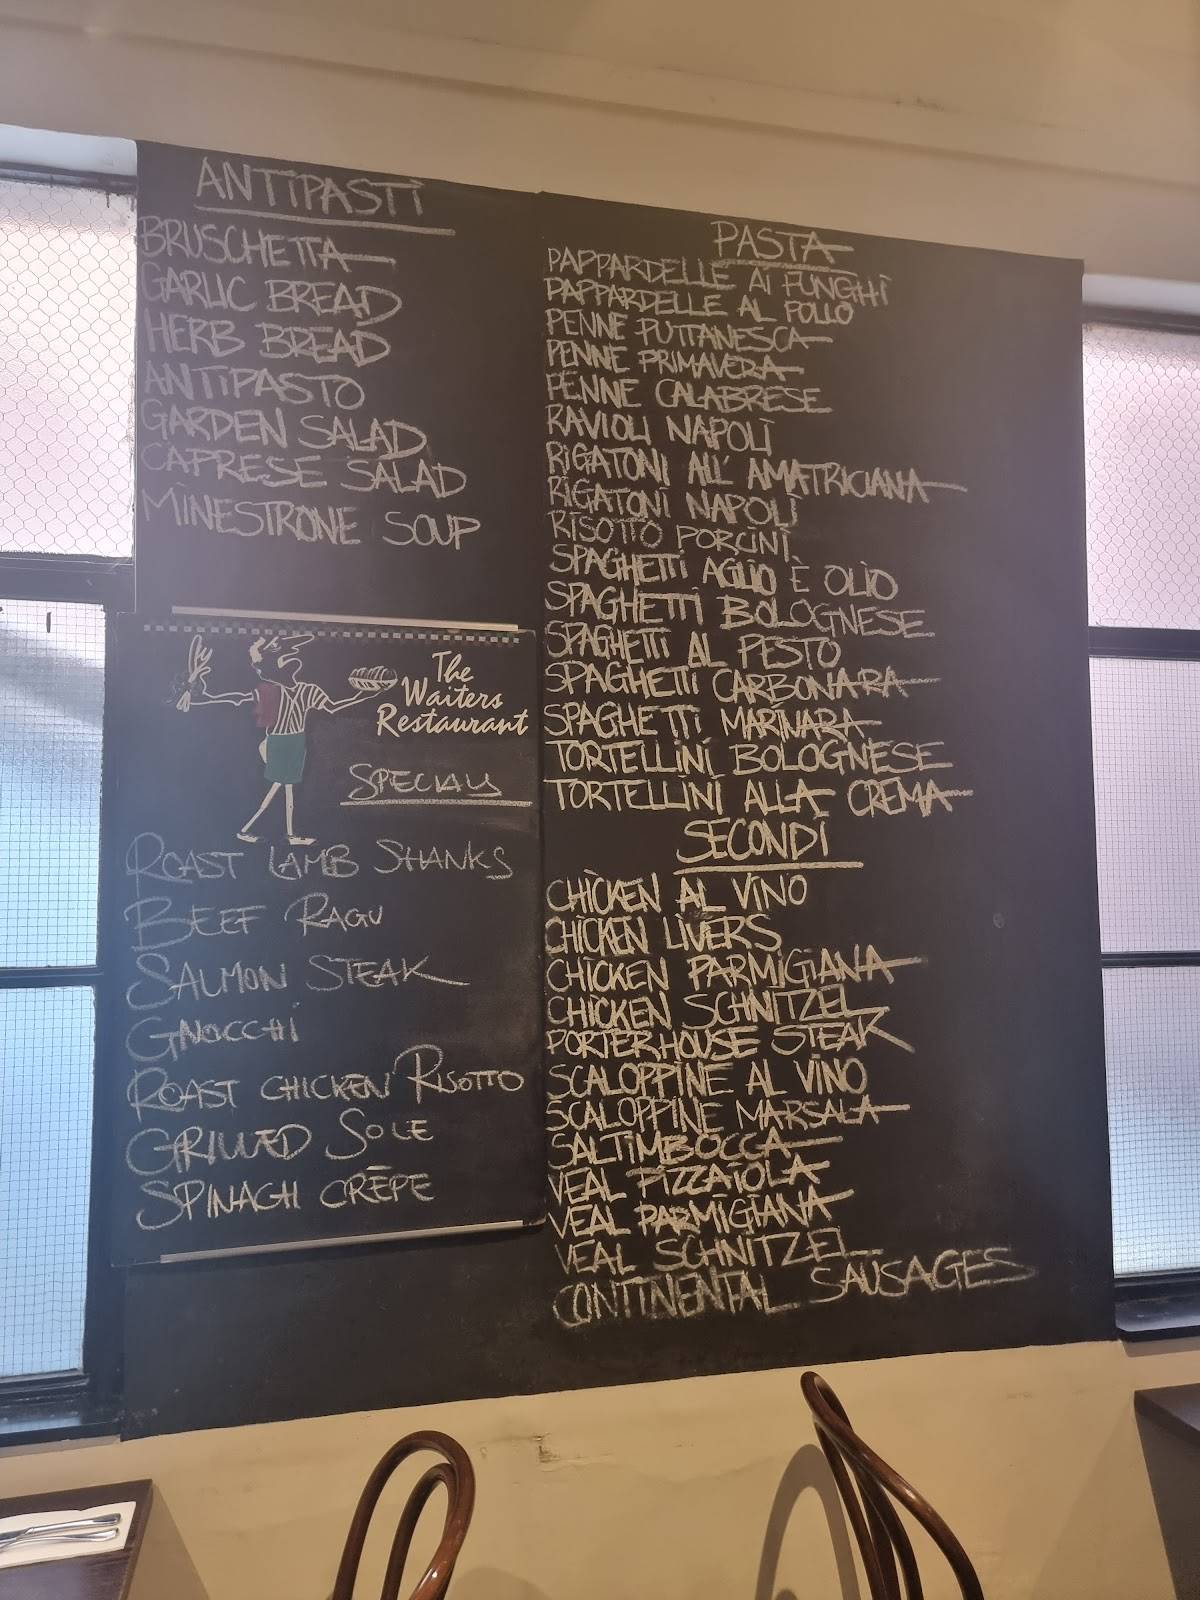 ANTIPASTI
BRUSCHETTA
GARLIC BREAD
HERB BREAD
ANTIPASTO
GARDEN SALAD
CAPRESE SALAD
MINESTRONE SOUP
The
Waiters
Restaurant
SPECIALS
ROAST LAMB SHANKS
BEEF RAGU
SALMON STEAK
GNOCCHI
ROAST CHICKEN RISOTTO
GRILLED SOLE
SPINACH CRÊPE
PASTA
PAPPARDELLE AI FUNGHI
PAPPARDELLE AL POLLO
PENNE PUTTANESCA
PENNE PRIMAVERA
PENNE CALABRESE
RAVIOLI NAPOLI
RIGATONI ALL' AMATRICIANA
RIGATONI NAPOLI
RISOTTO PORCINI
SPAGHETTI AGLIO È OLIO
SPAGHETTI BOLOGNESE
SPAGHETTI AL PESTO
SPAGHETTI CARBONARA
SPAGHETTI MARINARA
TORTELLINI BOLOGNESE
TORTELLINI ALLA CREMA
SECONDI
CHICKEN AL VINO
CHICKEN LIVERS
CHICKEN PARMIGIANA
CHICKEN SCHNITZEL
PORTERHOUSE STEAK
SCALOPPINE AL VINO
SCALOPPINE MARSALA
SALTIMBOCCA
VEAL PIZZAIOLA
VEAL PARMIGIANA
VEAL SCHNITZEL
CONTINENTAL SAUSAGES